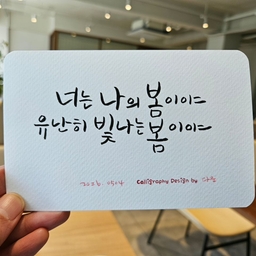 너는 나의 봄이야
유난히 빛나는 봄이야
Calligraphy Design by